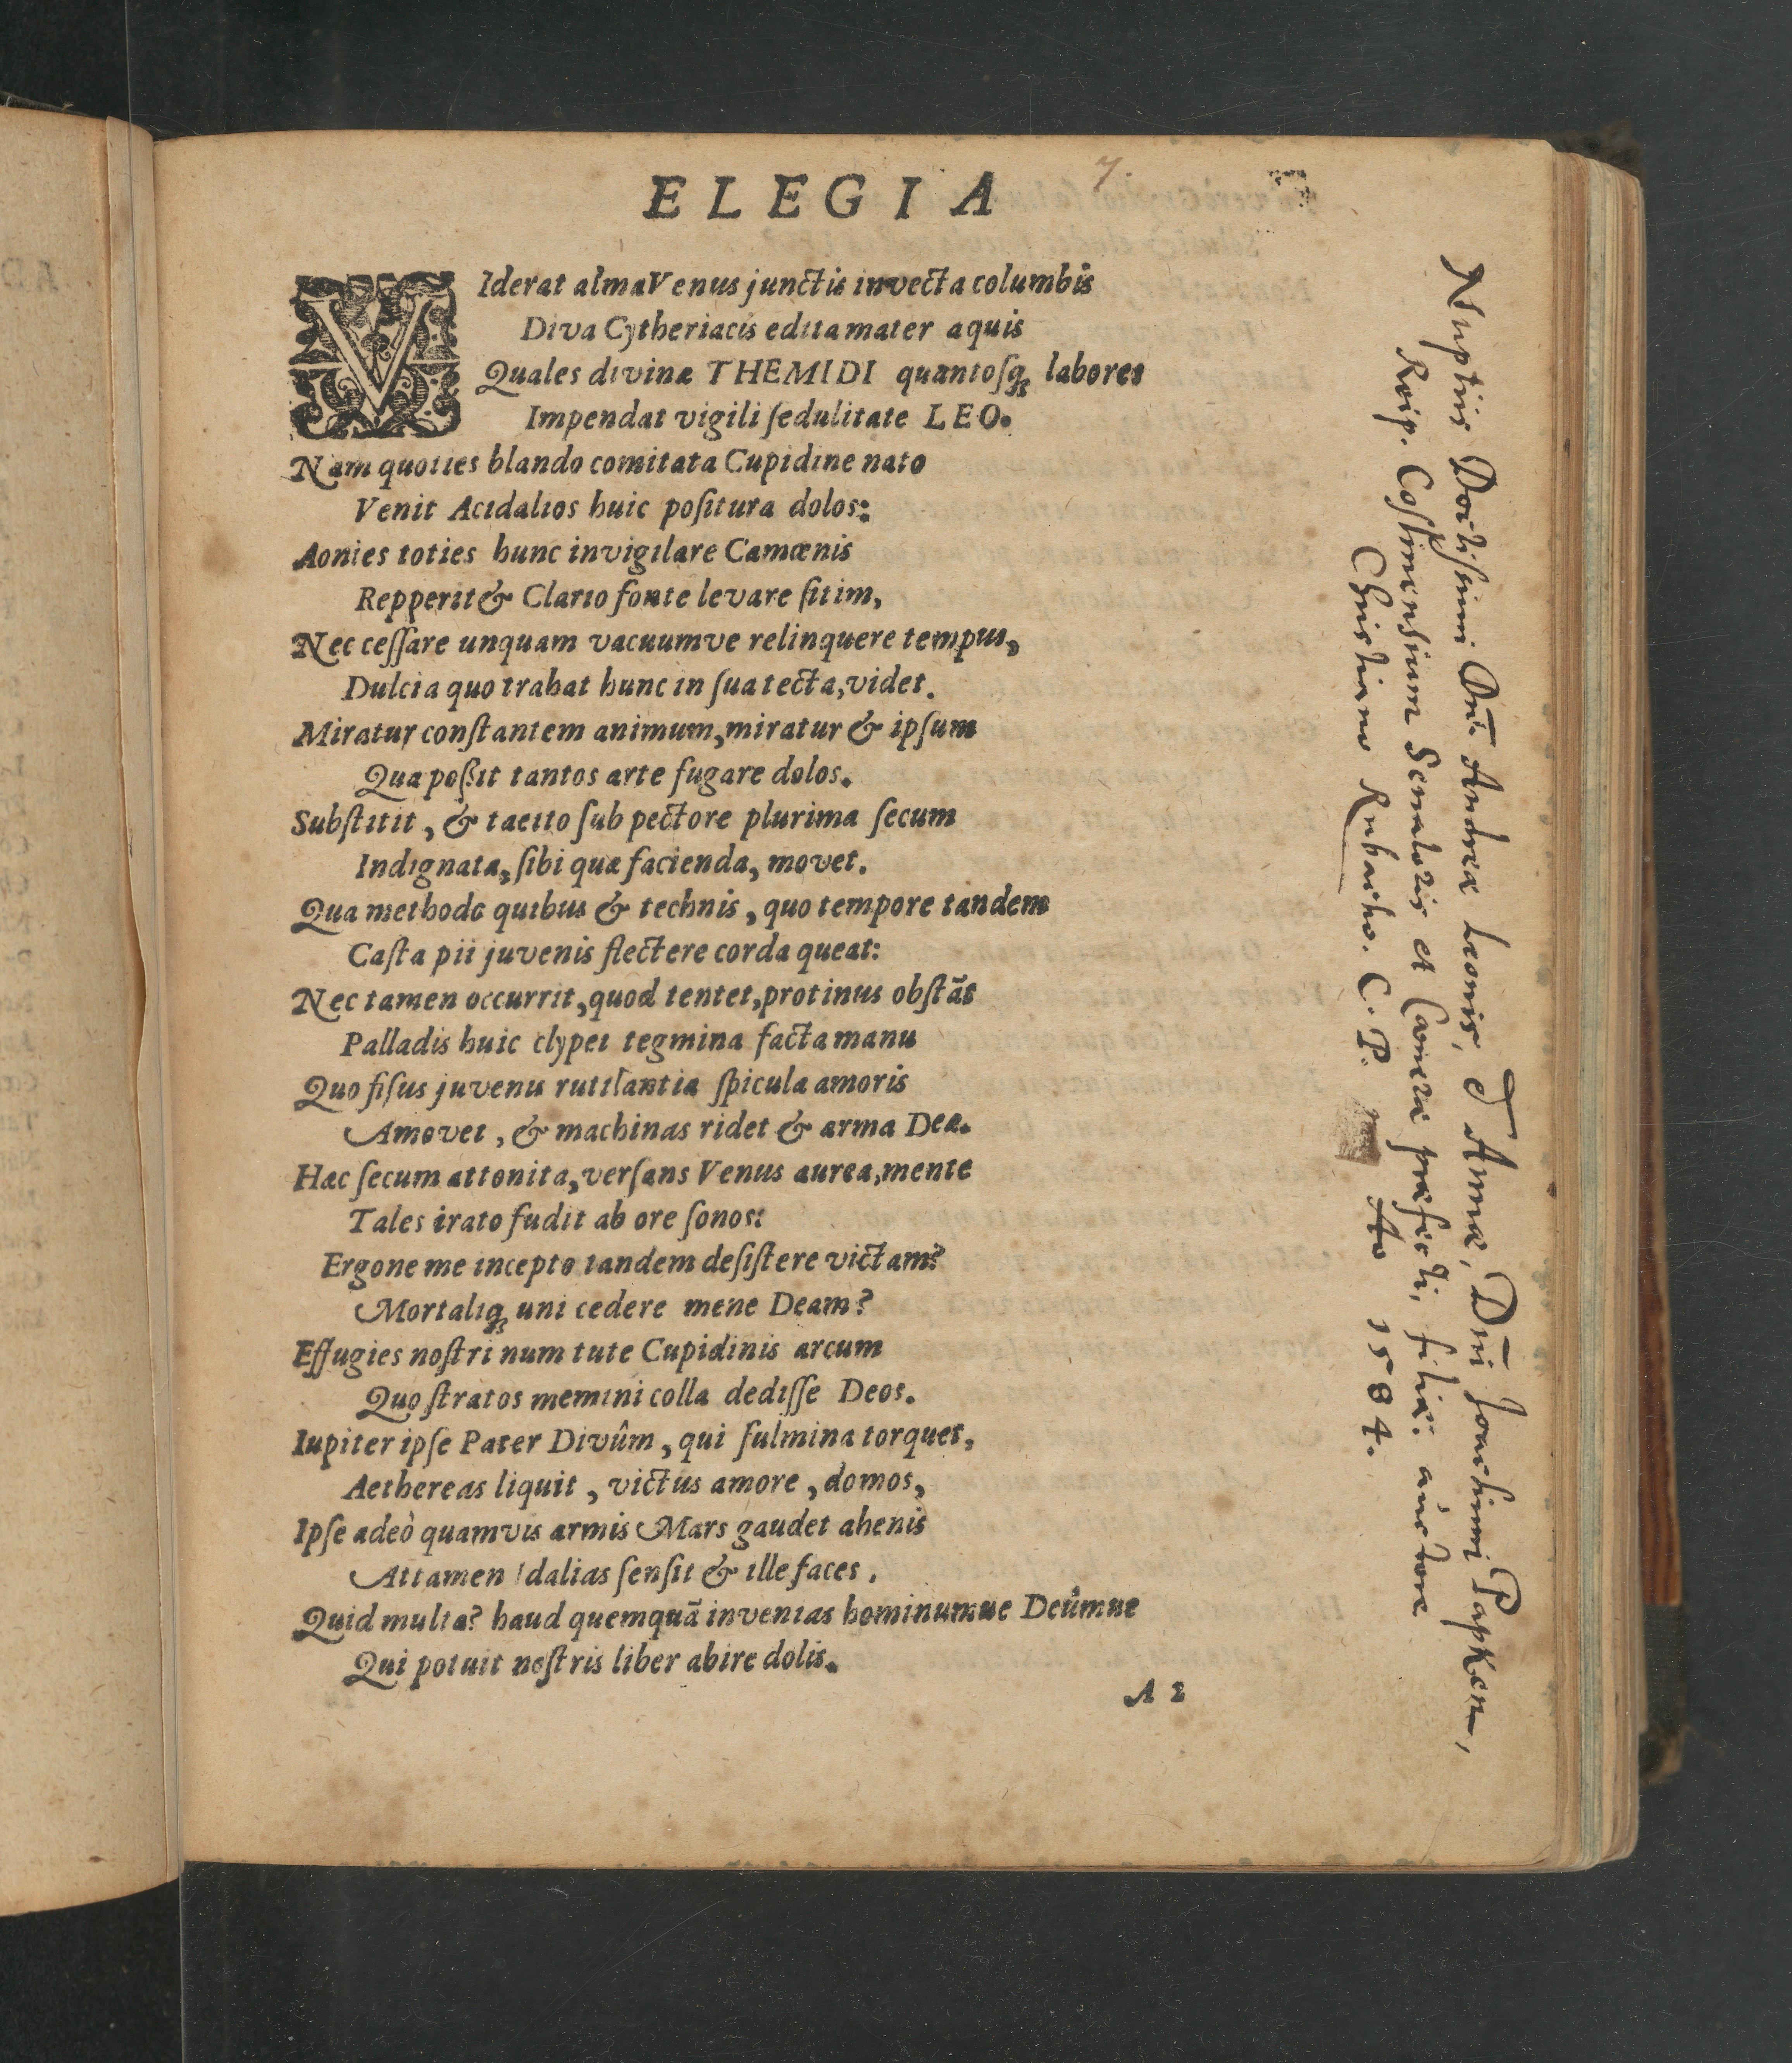 ELEGIA 7.
VIderat alma Venus junctis invecta columbis
Diva Cytheriacis edita mater aquis
Quales divinæ THEMIDI quantosq; labores
Impendat vigili ſedulitate LEO.
Nam quoties blando comitata Cupidine nato
Venit Acidalios huic poſitura dolos:
Aonies toties hunc invigilare Camœnis
Repperit & Clario fonte levare ſitim,
Nec ceſſare unquam vacuumve relinquere tempus,
Dulcia quo trahat hunc in ſua tecta, videt.
Miratur conſtantem animum, miratur & ipſum
Qua poßit tantos arte fugare dolos.
Subſtitit, & tacito ſub pectore plurima ſecum
Indignata, ſibi quæ facienda, movet.
Qua methodo quibus & technis, quo tempore tandem
Caſta pii juvenis flectere corda queat:
Nec tamen occurrit, quod tentet, protinus obſtãt
Palladis huic clypei tegmina facta manu
Quo fiſus juvenis rutilantia ſpicula amoris
Amovet, & machinas ridet & arma Deæ.
Hæc ſecum attonita, verſans Venus aurea, mente
Tales irato fudit ab ore ſonos:
Ergone me incepto tandem deſiſtere victam?
Mortaliq; uni cedere mene Deam?
Effugies noſtri num tute Cupidinis arcum
Quo ſtratos memini colla dediſſe Deos.
Iupiter ipſe Pater Divûm, qui fulmina torquet,
Aethereas liquit, victus amore, domos,
Ipſe adeò quamvis armis Mars gaudet ahenis
Attamen Idalias ſenſit & ille faces.
Quid multa? haud quemquã invenias hominumue Deûmue
Qui potuit noſtris liber abire dolis.
A 2
Nuptiis Doctiſsimi Dn̄i Andreæ Leonis, & Annæ, Dn̄i Joachimi Papken,
Reip. Coſlinensium Senatoris et Cameræ præfecti, filiæ: auctore
Christiano Rubacho. C. P.
Ao 1584.